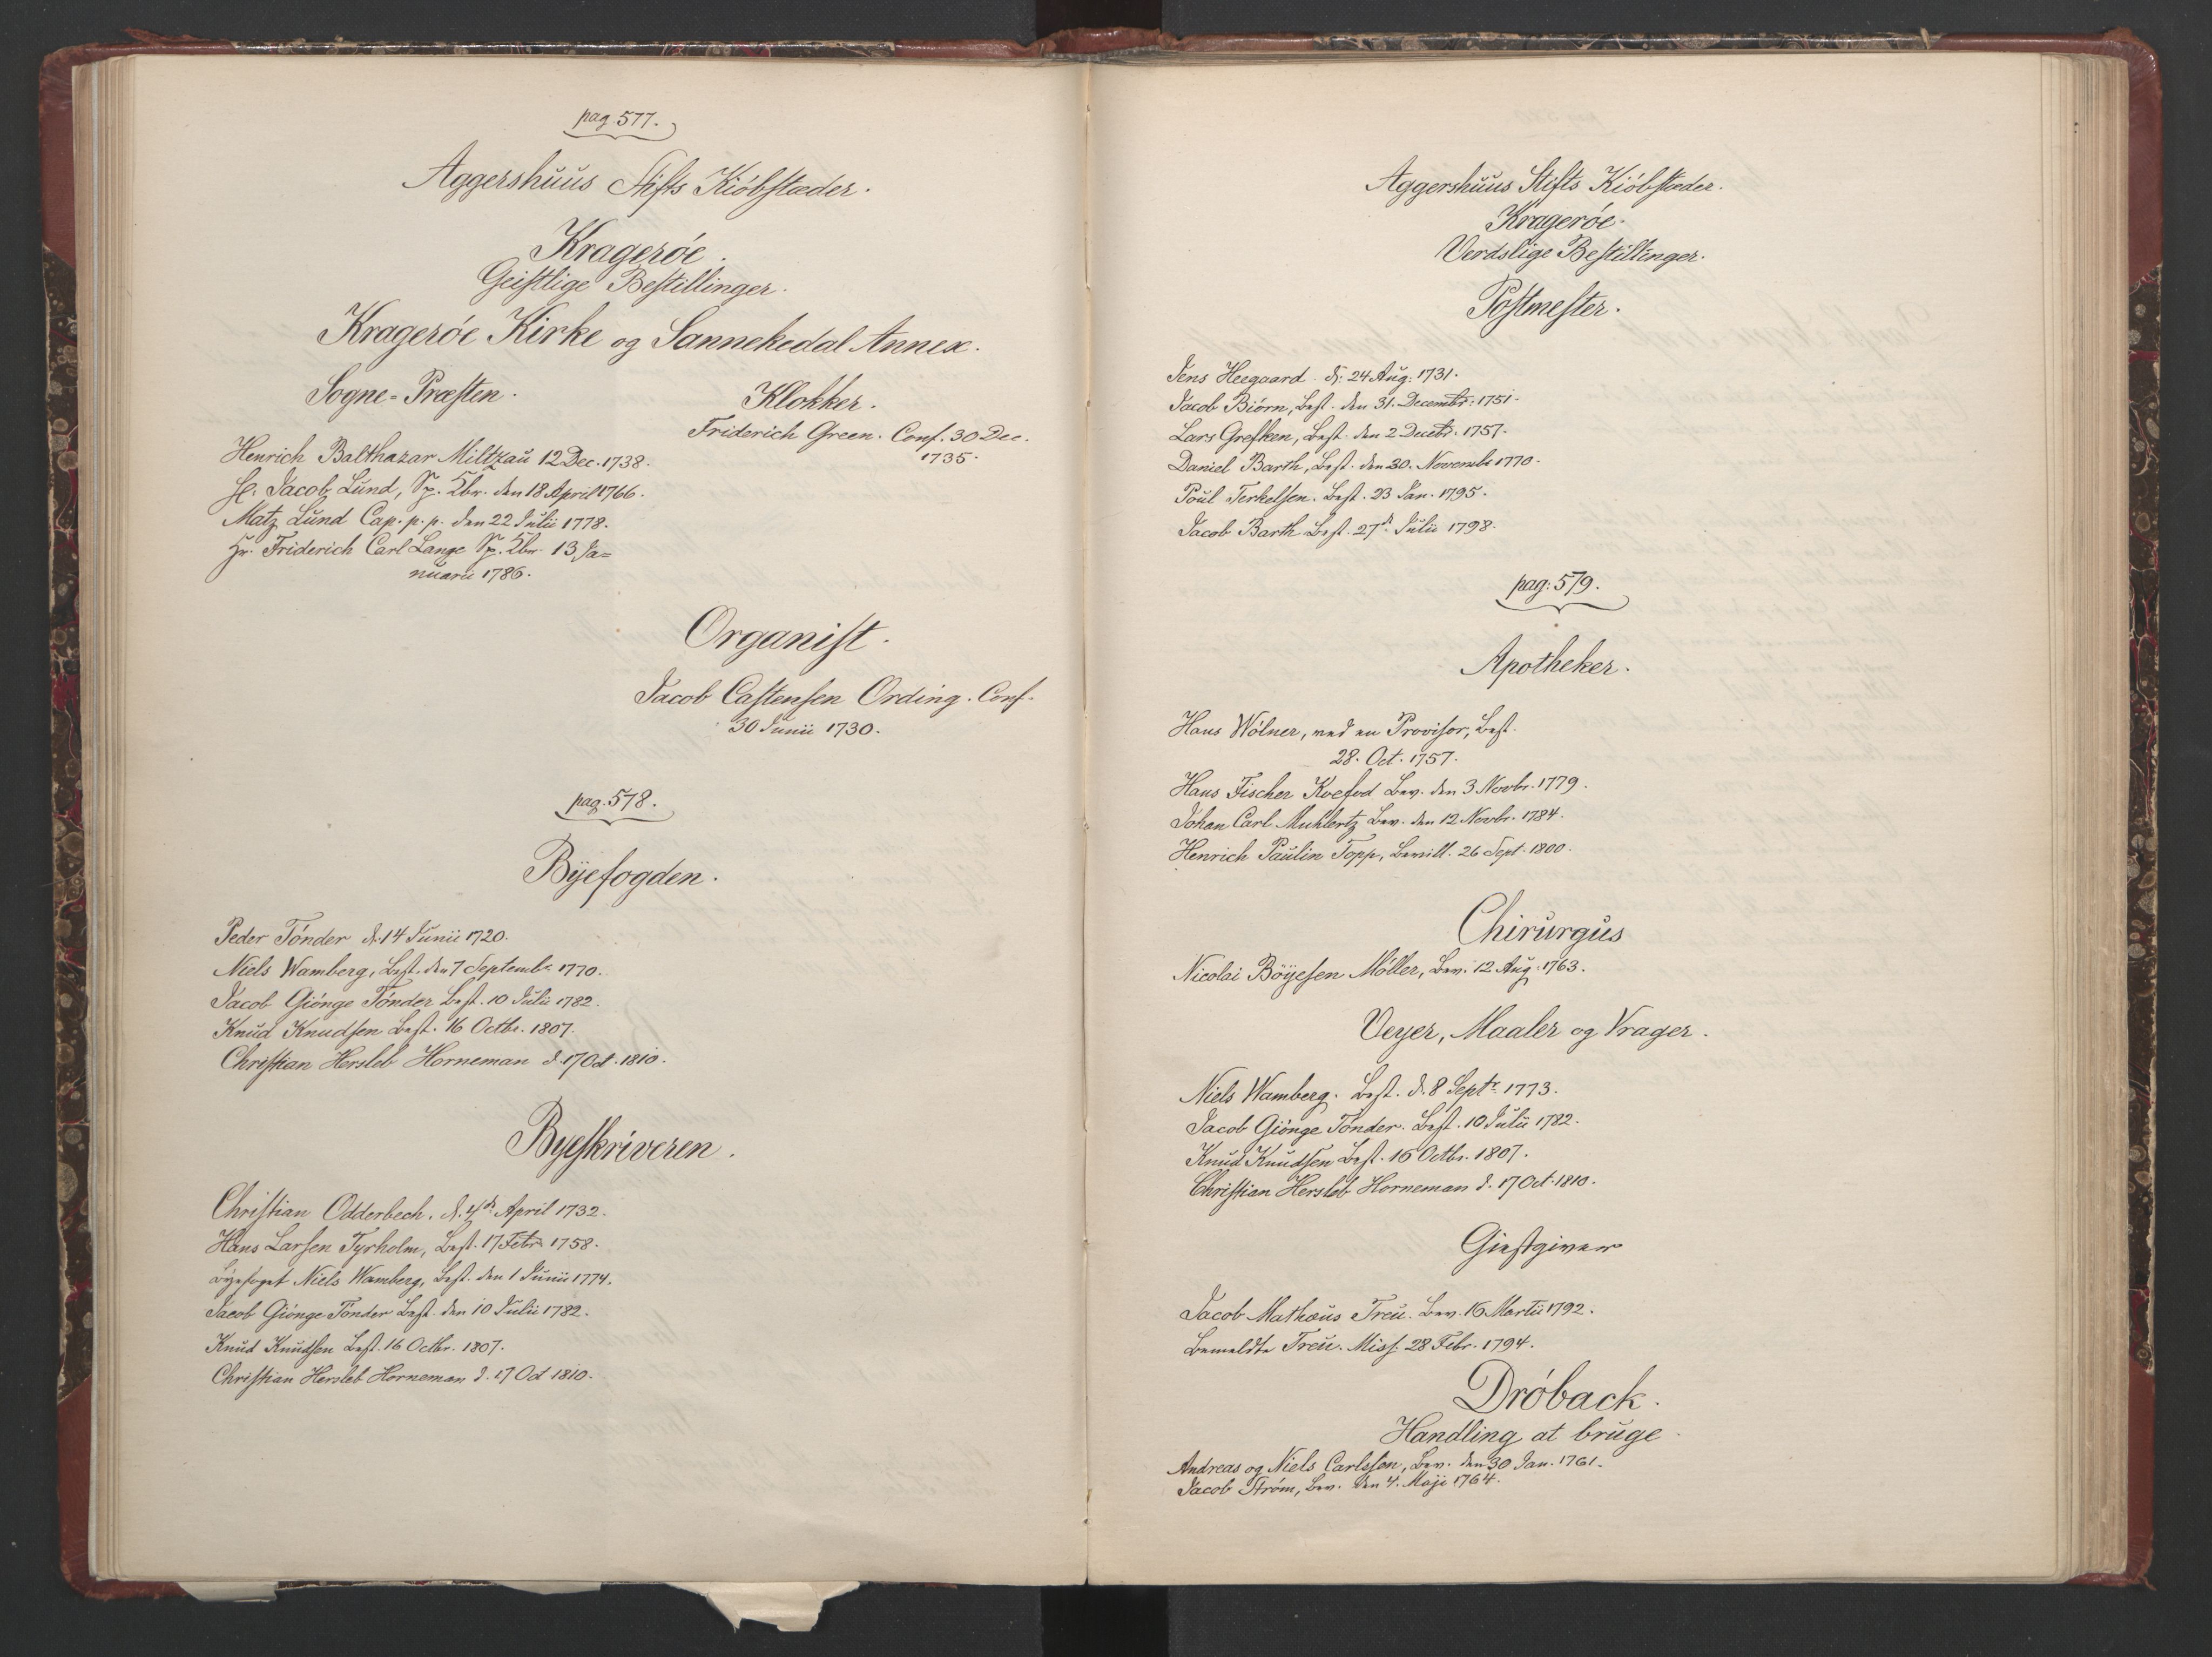 pag. 577.
Aggershuus Stifts Kiöbstæder.
Kragerøe.
Geistlige Bestillinger.
Kragerøe Kirke og Sannekedal Annex.
Sogne-Præsten.
Henrich Balthazar Miltzau 12 Dec. 1738.
H. Jacob Lund, Sp. Kbr. den 18 April 1766.
Matz Lund Cap. p. p. den 22 Julii 1778.
Hr. Friderich Carl Lange Sp. Kbr. 13 Ja=
nuarii 1786.
Klokker.
Friderich Green. Conf. 30 Dec.
1735.
Organist.
Jacob Castensen Ording. Conf.
30 Junii 1730.
pag. 578.
Byefogden.
Peder Tönder d. 14 Junii 1720.
Niels Wamberg, Best. den 7 Septembr. 1770.
Jacob Giönge Tönder Best. 10 Julii 1782.
Knud Knudsen Best. 16 Octbr. 1807.
Christian Hersleb Horneman d. 17 Oct. 1810.
Byeskriveren.
Christian Odderbech. d. 4de April 1732.
Hans Larsen Tyrholm, Best. 17 Febr. 1758.
Byefoget Niels Wamberg, Best. den 1 Junii 1774.
Jacob Giönge Tönder Best. den 10 Julii 1782.
Knud Knudsen Best. 16 Octbr. 1807.
Christian Hersleb Horneman d. 17 Oct 1810.
Aggershuus Stifts Kiöbstæder.
Kragerøe.
Verdslige Bestillinger.
Postmester.
Jens Heegaard. d: 24 Aug: 1731.
Jacob Biörn, Best. den 31. Decembr: 1751.
Lars Grefken, Best. den 2 Decbr. 1757.
Daniel Barth, Best. den 30. Novembr 1770.
Poul Terkelsen. Best. 23 Jan. 1795.
Jacob Barth Best. 27de Julii 1798.
pag: 579.
Apotheker.
Hans Wölner, med en Provisor, Best.
28. Oct. 1757.
Hans Fischer Koefod Bev. den 3 Novbr. 1779.
Johan Carl Muhlertz Bev. den 12 Novbr. 1784.
Henrich Paulin Topp, Bevill. 26 Sept. 1800.
Chirurgus
Nicolai Böyesen Möller, Bev. 12 Aug. 1763.
Veyer, Maaler og Vrager.
Niels Wamberg. Best. d. 8 Septr. 1773.
Jacob Giönge Tönder. Best. 10 Julii 1782.
Knud Knudsen Best. 16 Octbr. 1807.
Christian Hersleb Horneman d. 17 Oct. 1810.
Giæstgiver
Jacob Mathæus Treu. Bev. 16 Martii 1792.
Bemeldte Treu. Miss: 28 Febr. 1794.
Dröback.
Handling at bruge
Andreas og Niels Carlsson, Bev. den 30 Jan. 1761.
Jacob Ström, Bev. den 4. Maji 1764.